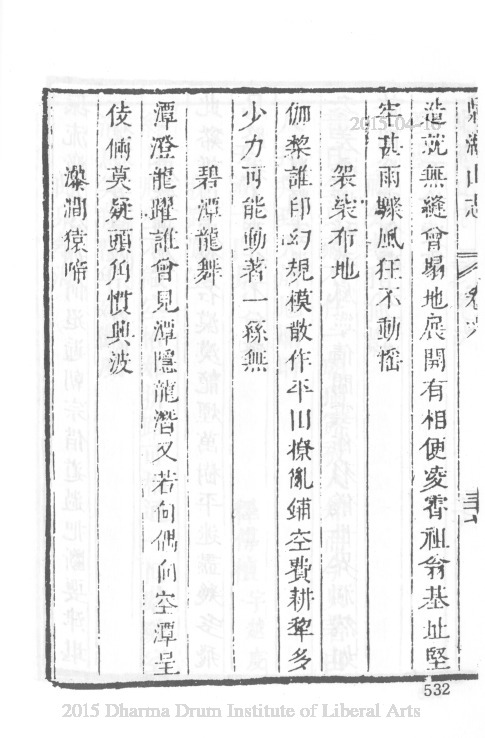 鼎湖山志
造就無縫曾塌地展開有相便凌霄祖翁基址堅
牢甚雨驟風狂不動搖
袈裟布地
伽棃誰印幻規模散作平田撩亂鋪空費耕犂多
少力可能動著一絲無
碧潭龍舞
潭澄龍躍誰曾見潭隱龍潛又若何偶向空潭呈
伎倆莫疑頭角慣興波
瀑澗猿啼
532
2015-04-16
2015 Dharma Drum Institute of Liberal Arts